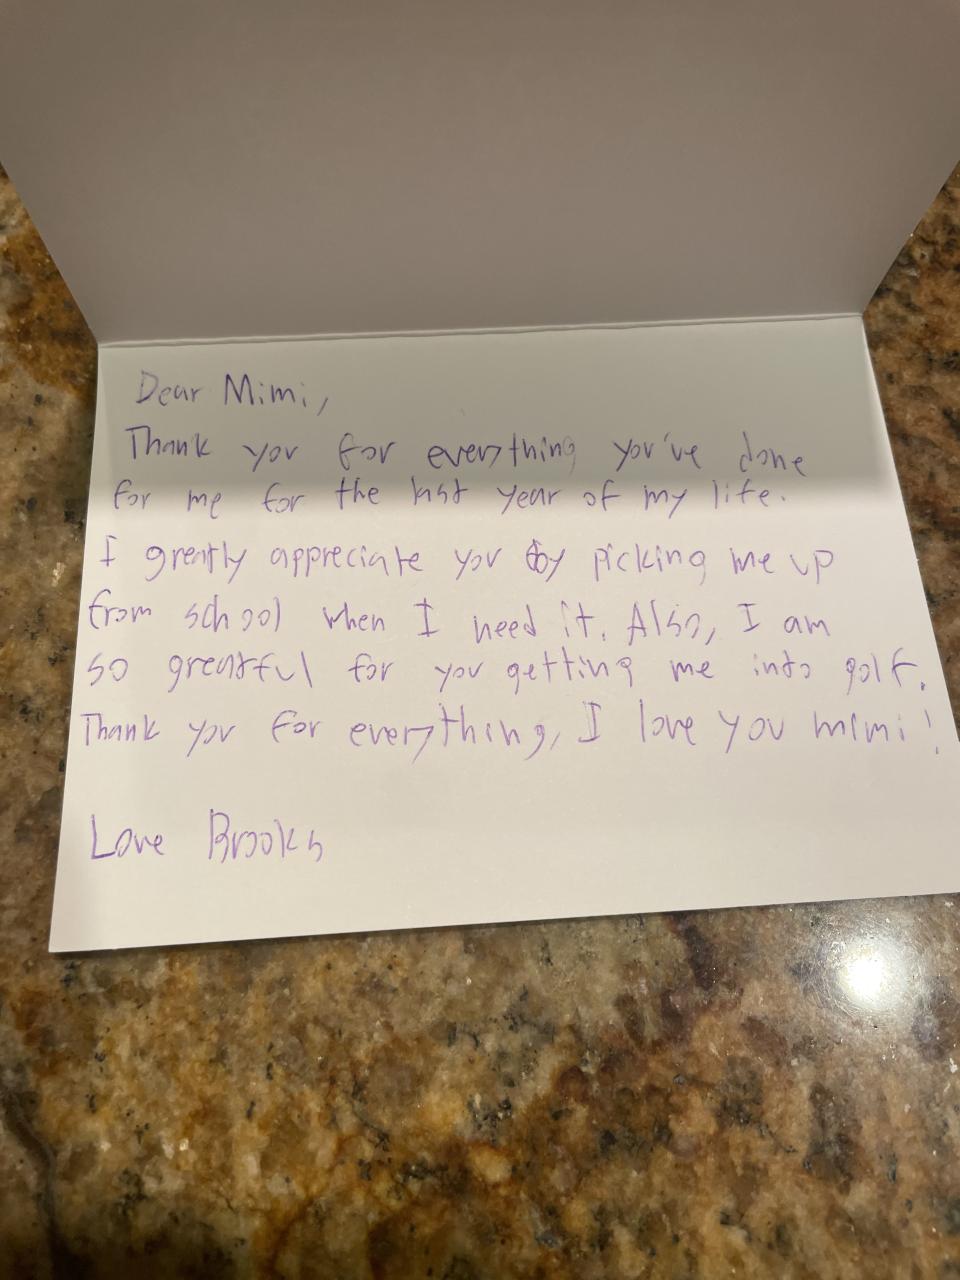 Dear Mimi,
Thank you for everything you've done
for me for the last year of my life.
I greatly appreciate you by picking me up
from school when I need it. Also, I am
so greatful for you getting me into golf.
Thank you for everything, I love you mimi!
Love Brooks